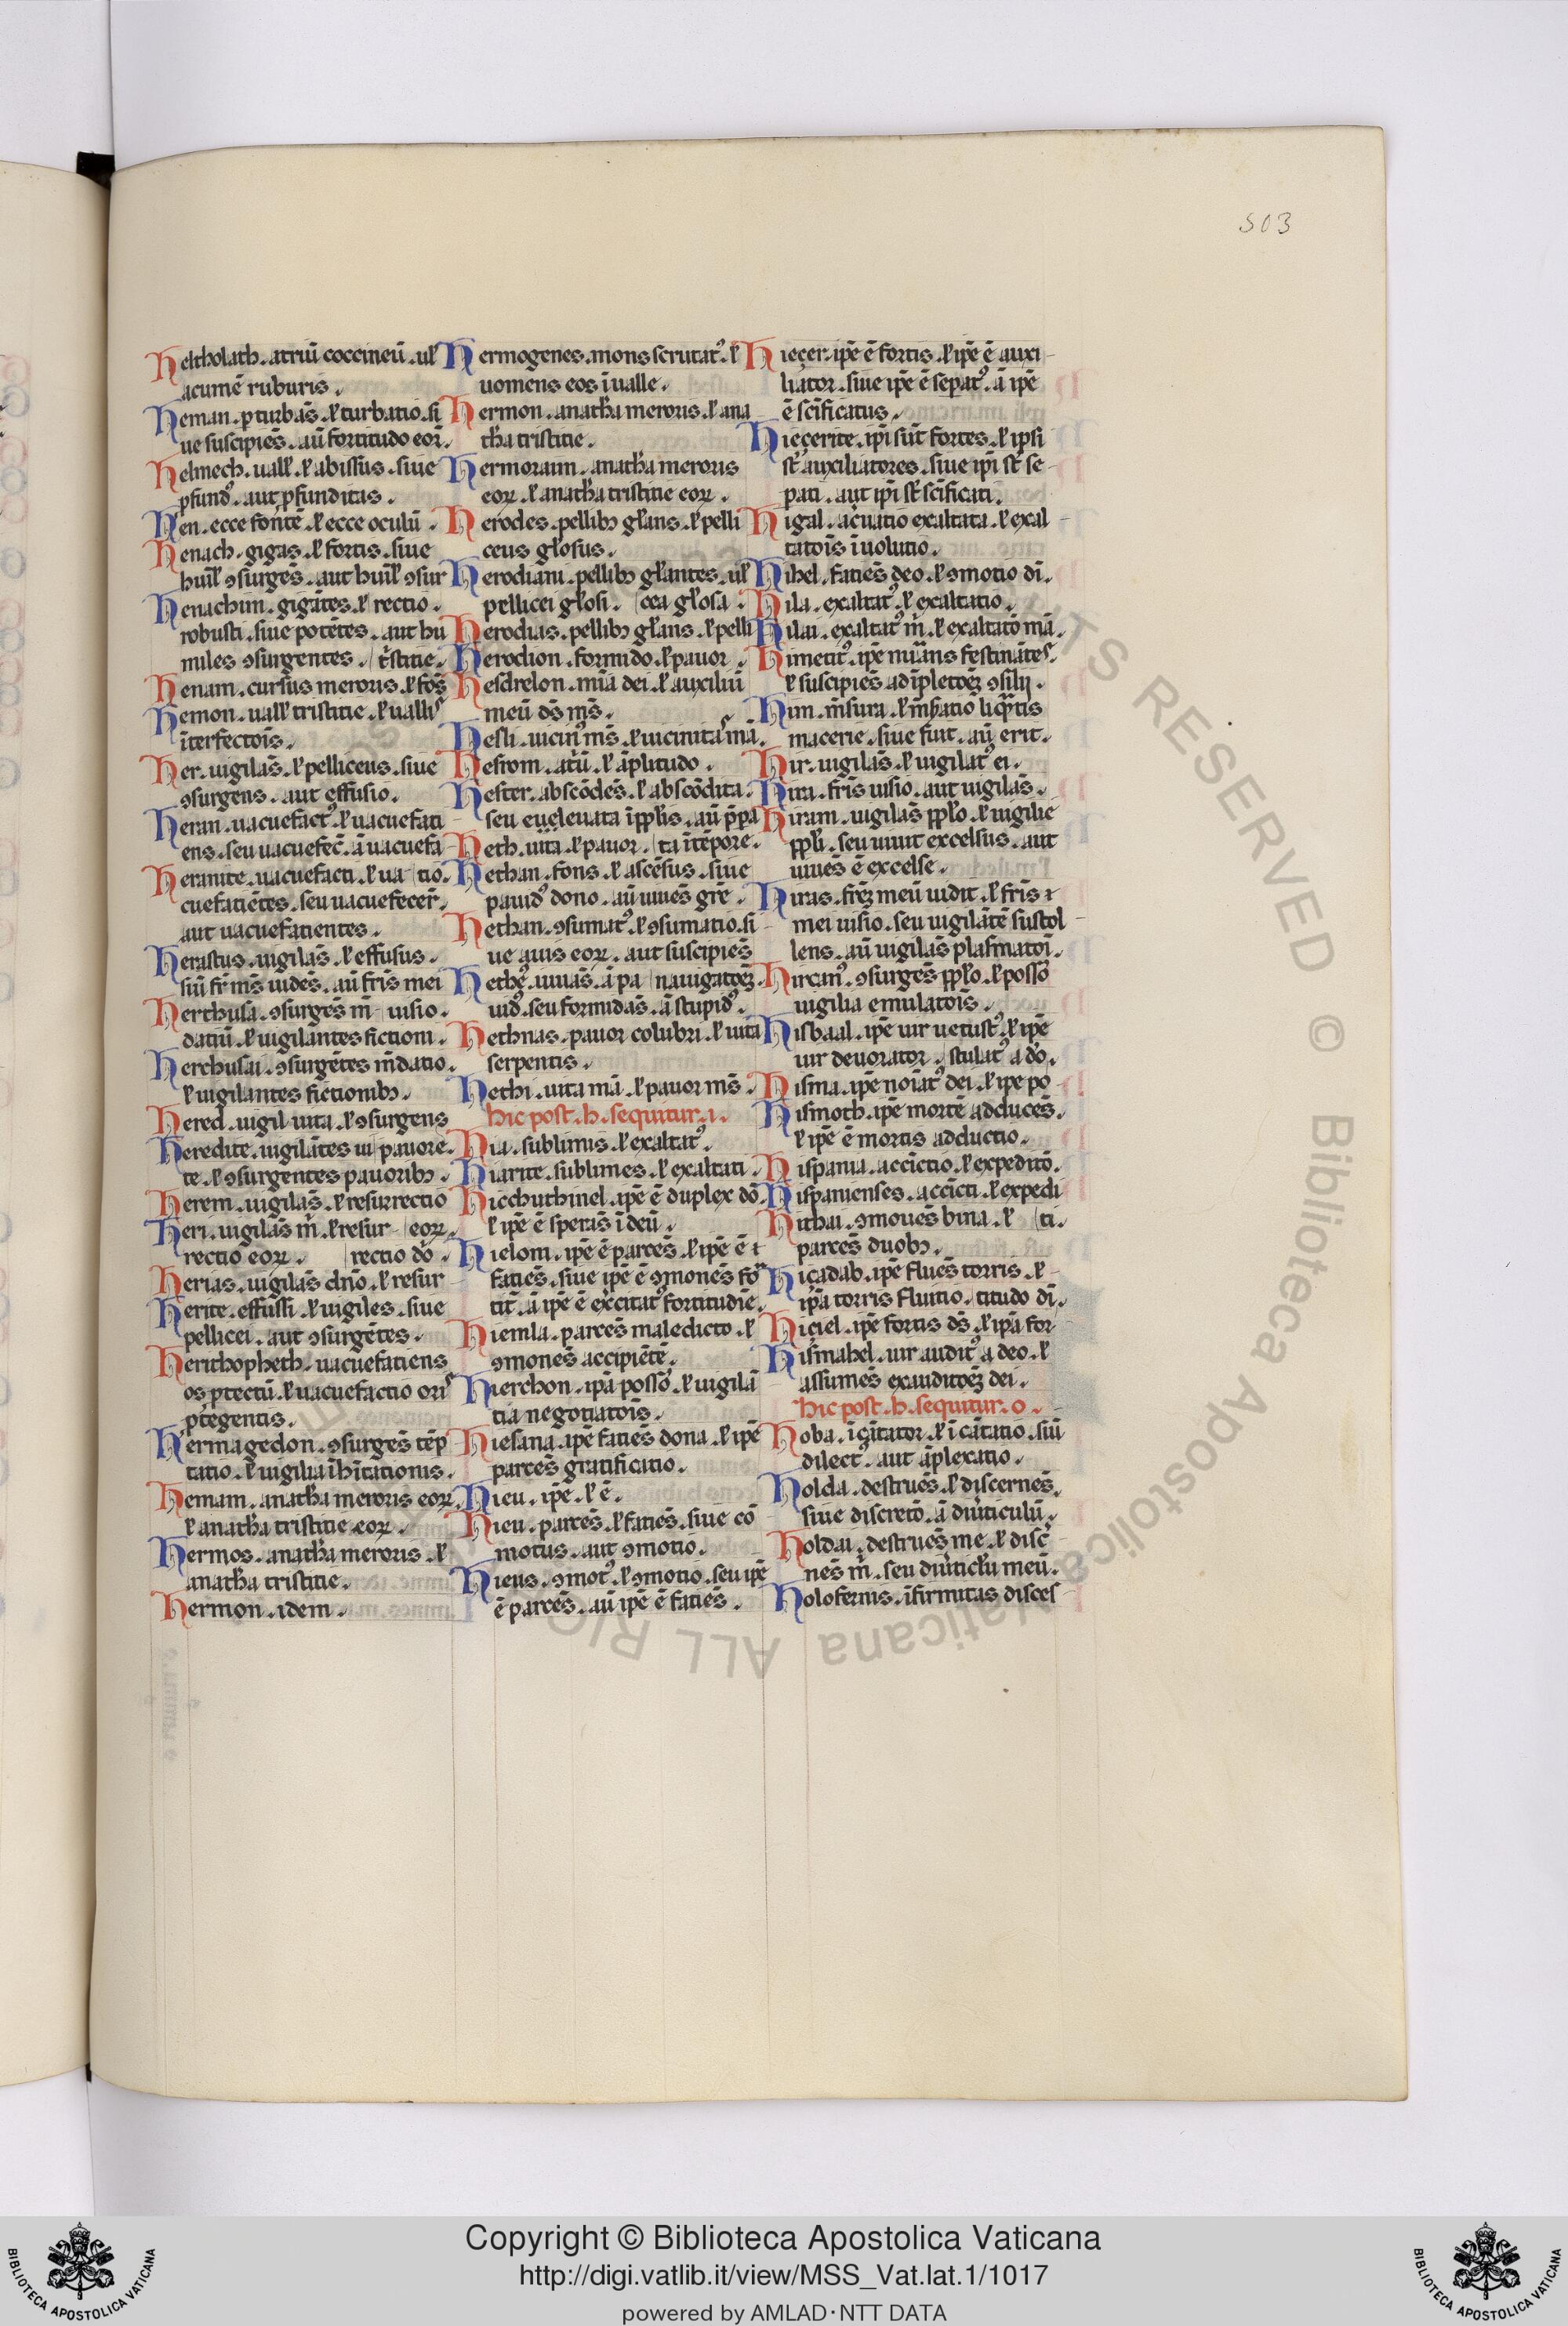 503
Heltholath. atriū coccineū. ul'
acumē ruburis.
Heman. ꝑturbās̄. ul' turbatio. si
ue suscipiēs. aū fortitudo eoꝝ.
Helmech. uall'. ul' abissus. siue
ꝓfundꝰ. aut ꝓfunditas.
Hen. ecce fontē. ul' ecce oculū.
Henach. gigas. ul' fortis. siue
huīl' ꝯsurgēs. aut huīl' ꝯsur
Henachim. gigātes. ul' rectio.
robusti. siue potētes. aut hu
miles ꝯsurgentes. t'stitie.
Henam. cursus meroris. ul' fōs
Hemon. uall' tristitie. ul' uallis
īterfectoīs.
Her. uigilās. ul' pelliceus. siue
ꝯsurgens. aut effusio.
Heran. uacuefactꝰ. ul' uacuefati
ens. seu uacuefec̄. ā uacuefa
Heranite. uacuefacti. ul' ua tio.
cuefatiētes. seu uacuefecer̄.
aut uacuefatientes.
Herastus. uigilās. ul' effusus.
siū fr̄ m̄s uidēs. aū fr̄is mei
Herthusa. ꝯsurgēs m̄ uisio.
datiū. ul' uigilantes fictioni.
Herchusai. ꝯsurgētes m̄datio.
ul' uigilantes fictionibꝫ.
Hered. uigil uita. ul' ꝯsurgens
Heredite. uigilātes ui pauore.
te. ul' ꝯsurgentes pauoribꝫ.
Herem. uigilās. ul' resurrectio
Heri. uigilās m̄. ul' resur eoꝝ.
rectio eoꝝ. rectio dō.
Herias. uigilās dn̄o. ul' resur
Herite. effussi. ul' uigiles. siue
pellicei. aut ꝯsurgētes.
Herithopheth. uacuefatiens
os ꝓtectū. ul' uacuefactio oris
ꝓtegentis.
Hermagedon. ꝯsurgēs tēp
tatio. ul' uigilia īh̄itationis.
Hemam. anath'a meroris eoꝝ.
ul' anath'a tristitie eoꝝ.
Hermos. anath'a meroris. ul'
anath'a tristitie.
Hermon. idem.
Hermogenes. mons scrutatꝰ. ul'
uomens eos ī ualle.
Hermon. anath'a meroris. ul' ana
th'a tristitie.
Hermoraim. anath'a meroris
eoꝝ. ul' anath'a tristitie eoꝝ.
Herodes. pellibꝫ gl'ans. ul' pelli
ceus gl'osus.
Herodiani. pellibꝫ gl'antes. ul'
pellicei gl'osi. cea gl'osa.
Herodias. pellibꝫ gl'ans. ul' pelli
Herodion. formido. ul' pauor.
Hesdrelon. mīa dei. ul' auxiliū
meū ds̄ ms̄.
Hesli. uicinꝰ ms̄. ul' uicinitas mā.
Hesrom. atrīū. ul' āplitudo.
Hester. abscōdēs. ul' abscōdita.
seu eueleuata ī ppl'is. aū p̄pa
Heth. uita. ul' pauor. ta ī tēpore.
Hethan. fons. ul' ascēsus. siue
pauidꝰ dono. aū uiuēs gr̄e.
Hethan. ꝯsumatꝰ. ul' ꝯsumatio. si
ue auis eoꝝ. aut suscipiēs
Hethꝰ. uiuās. ā pa nauigatoēꝫ.
uidꝰ. seu formidās. ā stupidꝰ.
Hethnas. pauor colubri. ul' uita
serpentis.
Hethi. uita mā. ul' pauor ms̄.
hic post. h. sequitur. i.
Hia. sublimis. ul' exaltatꝰ.
Hiarite. sublimes. ul' exaltati.
Hicchuthinel. ip̄e ē duplex dō.
ul' ip̄e ē sperās ī deū.
Hielom. ip̄e ē parcēs. ul' ip̄e ē
fatiēs. siue ip̄e ē ꝯmonēs fo
tit̄. ā ip̄e ē excitatꝰ fortitudīe.
Hiemla. parcēs maledicto. ul'
ꝯmonēs accipiētē.
Hierchon. ip̄a possō. ul' uigilā
tia negotiatoīs.
Hiesana. ip̄e fatiēs dona. ul' ip̄e
parcēs gratificatio.
Hieu. ip̄e. ul' ē.
Hieu. parcēs. ul' fatiēs. siue cō
motus. aut ꝯmotio.
Hieus. ꝯmotꝰ. ul' ꝯmotio. seu ip̄e
ē parcēs. aū ip̄e ē fatiēs.
Hiecer. ip̄e ē fortis. ul' ip̄e ē auxi
liator. siue ip̄e ē sepatꝰ. ā ip̄e
ē sc̄ificatus.
Hiecerite. ip̄i sūt fortes. ul' ipsi
st̄ auxiliatores. siue ip̄i st̄ se
pati. aut ip̄i st̄ sc̄ificati.
Higal. ac̄uatio exaltata. ul' exal
tatoīs īuolutio.
Hihel. fatiēs deo. ul' ꝯmotio dī.
Hila. exaltatꝰ. ul' exaltatio.
Hilai. exaltatꝰ m̄. ul' exaltatō mā.
Himetitꝰ. ip̄e nūans festinātes.
ul' suscipiēs ad īpletoēꝫ ꝯsilij.
Him. m̄sura. ul' liq̄rtis
macerie. siue fuit. aū erit.
Hir. uigilās. ul' uigilatꝰ ei.
Hira. fr̄is uisio. aut uigilās.
Hiram. uigilās ppl'o. ul' uigilie
ppl'i. seu uiuit excelsus. aut
uiuēs ē excelse.
Hiras. fr̄eꝫ meū uidit. ul' fr̄is
mei uisio. seu uigilātē sustol
lens. aū uigilās plasmatoī.
Hircanꝰ. ꝯsurgēs ppl'o. ul' possō
uigilia emulatoīs.
Hisbaal. ip̄e uir uetustꝰ. ul' ip̄e
uir deuorator. stulatꝰ a dō.
Hisma. ip̄e noīatꝰ dei. ul' ipe po
Hismoth. ip̄e mortē adducēs.
ul' ip̄e ē mortis adductio.
Hispania. accīctio. ul' expeditō.
Hispanienses. accīcti. ul' expedi
Hithai. ꝯmouēs bina. ul' ti.
parcēs duobꝫ.
Hicadab. ip̄e fluēs torris. ul'
ip̄a torris fluitio. titudo dī.
Hiciel. ip̄e fortis ds̄. ul' ip̄a for
Hismahel. uir auditꝰ a deo. ul'
assumēs exauditoēꝫ dei.
hic post. h. sequitur. o.
Hoba. īcātator. ul' īcātatio. siū
dilectꝰ. aut āplexatio.
Holda. destruēs. ul' discernēs.
siue discretō. ā diūticulū.
Holdai. destruēs me. ul' disc̄
nēs m̄. seu diūticl'u meū.
Holofernis. īfirmitas disces
Biblioteca Apostolica Vaticana ALL RIGHTS RESERVED ©
Copyright © Biblioteca Apostolica Vaticana
http://digi.vatlib.it/view/MSS_Vat.lat.1/1017
powered by AMLAD·NTT DATA
BIBLIOTECA APOSTOLICA VATICANA
BIBLIOTECA APOSTOLICA VATICANA